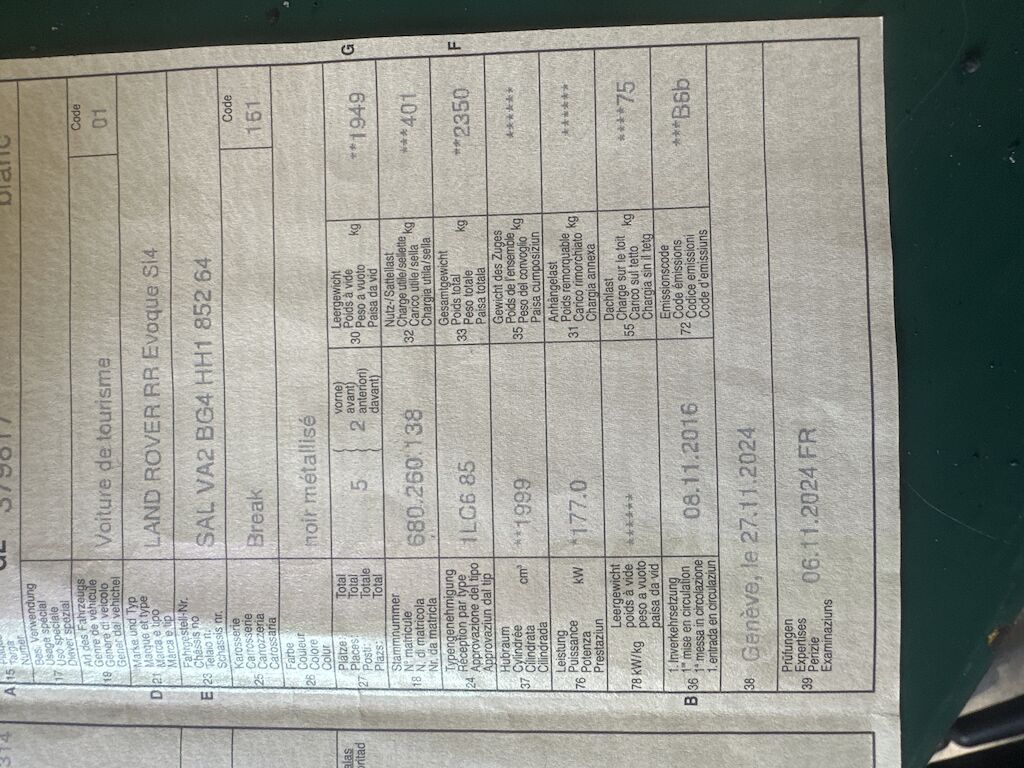 A 15 Targa
Numer
GE 379817
blanc
Bes. Verwendung
Usage spécial
17 Uso speciale
Diever spezial
Art des Fahrzeugs
Genre de véhicule
19 Genere di veicolo
Gener dal vehichel
Voiture de tourisme
Code
01
Marke und Typ
D 21 Marque et type
Marca e tipo
Marca e tip
LAND ROVER RR Evoque SI4
Fahrgestell-Nr.
E 23 Châssis no
Telaio n.
Schassis nr.
SAL VA2 BG4 HH1 852 64
Karosserie
25 Carrosserie
Carrozzeria
Carossaria
Break
Code
151
Farbe
26 Couleur
Colore
Colur
noir métallisé
Plätze: Total
27 Places: Total
Posti: Totale
Plazs: Total
5
2
vorne)
avant)
anteriori)
davant)
Leergewicht
30 Poids à vide
Peso a vuoto kg
Paisa da vid
**1949
G
Stammnummer
18 N° matricule
N. di matricola
Nr. da matricla
680.260.138
Nutz-/Sattellast
32 Charge utile/sellette kg
Carico utile/sella
Chargia utila/sella
***401
Typengenehmigung
24 Réception par type
Approvazione del tipo
Approvaziun dal tip
1LC6 85
Gesamtgewicht
33 Poids total
Peso totale kg
Paisa totala
**2350
F
Hubraum
37 Cylindrée cm³
Cilindrata
Cilindrada
**1999
Gewicht des Zuges
35 Poids de l'ensemble kg
Peso del convoglio
Paisa cumposiziun
******
Leistung
76 Puissance kW
Potenza
Prestaziun
*177.0
Anhängelast
31 Poids remorquable kg
Carico rimorchiato
Chargia annexa
******
78 kW/kg Leergewicht
poids à vide
peso a vuoto
paisa da vid
******
Dachlast
55 Charge sur le toit kg
Carico sul tetto
Chargia sin il tetg
****75
1. Inverkehrsetzung
B 36 1re mise en circulation
1a messa in circolazione
1. entrada en circulaziun
08.11.2016
Emissionscode
72 Code émissions
Codice emissioni
Code d'emissiuns
***B6b
38
Genève, le 27.11.2024
Prüfungen
39 Expertises
Perizie
Examinaziuns
06.11.2024 FR
314